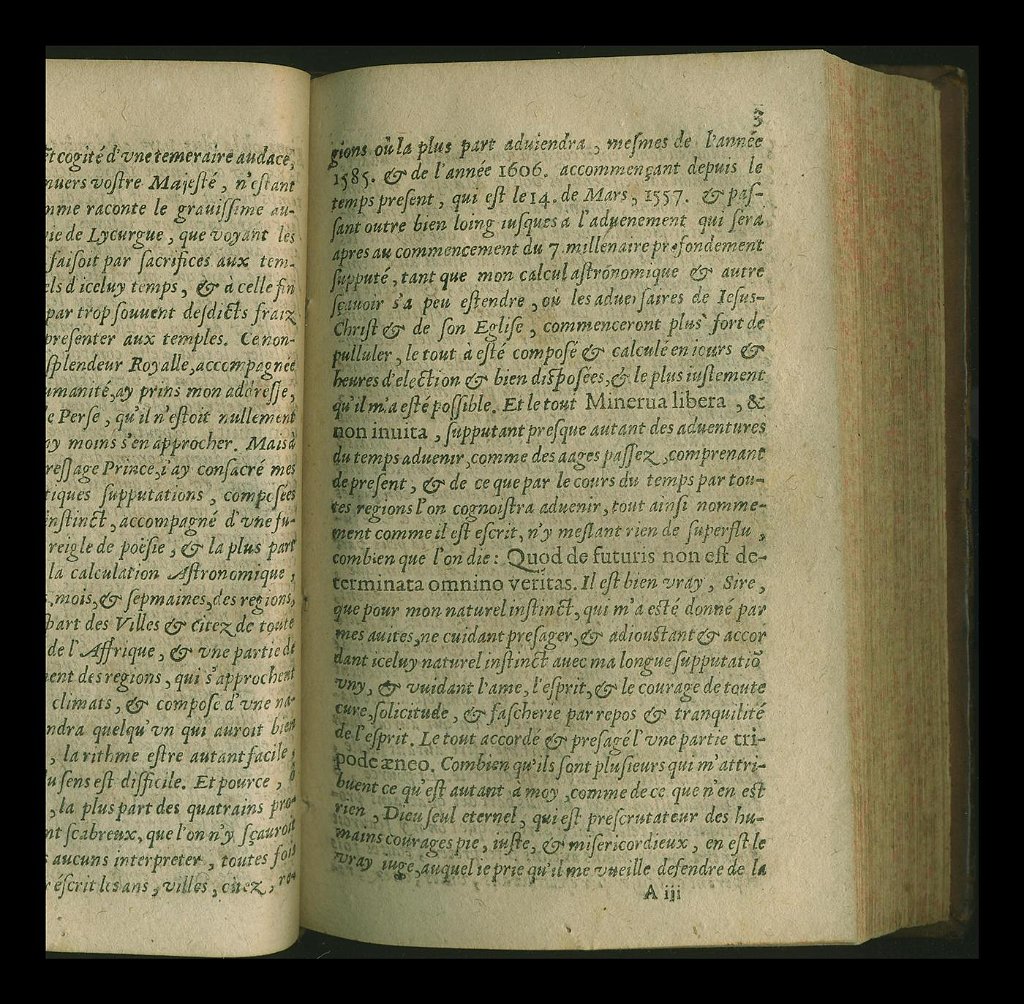 cogité d'vne temeraire audace,
vostre Majesté, n'estant
raconte le grauissime au-
de Lycurgue, que voyant les
faisoit par sacrifices aux tem-
d'iceluy temps, & à celle fin
par trop souuent desdicts fraiz
presenter aux temples. Ce non-
splendeur Royalle, accompagnée
ay prins mon addresse,
Perse, qu'il n'estoit nullement
moins s'en approcher. Mais à
Prince, i'ay consacré mes
supputations, composées
accompagné d'vne fu-
reigle de poësie, & la plus part
la calculation Astronomique,
mois, & sepmaines, des regions,
part des Villes & citez de toute
de l'Affrique, & vne partie de
des regions, qui s'approchent
climats, & compose d'vne na-
quelqu'vn qui auroit bien
, la rithme estre autant facile,
sens est difficile. Et pource, ô
, la plus part des quatrains pro-
scabreux, que l'on n'y sçauroit
aucuns interpreter, toutes fois
éscrit les ans, villes, citez, re-
3
gions où la plus part aduiendra, mesmes de l'année
1585. & de l'année 1606. accommençant depuis le
temps present, qui est le 14. de Mars, 1557. & pas-
sant outre bien loing iusques à l'aduenement qui sera
apres au commencement du 7. millenaire profondement
supputé, tant que mon calcul astronomique & autre
sçauoir s'a peu estendre, où les aduersaires de Iesus-
Christ & de son Eglise, commenceront plus fort de
pulluler, le tout à esté composé & calculé en iours &
heures d'election & bien disposées, & le plus iustement
qu'il m'a esté possible. Et le tout Minerua libera, &
non inuita, supputant presque autant des aduentures
du temps aduenir, comme des aages passez, comprenant
de present, & de ce que par le cours du temps par tou-
tes regions l'on cognoistra aduenir, tout ainsi nomme-
ment comme il est escrit, n'y meslant rien de superflu,
combien que l'on die: Quod de futuris non est de-
terminata omnino veritas. Il est bien vray, Sire,
que pour mon naturel instinct, qui m'a esté donné par
mes auites, ne cuidant presager, & adioustant & accor
dant iceluy naturel instinct auec ma longue supputatiō
vny, & vuidant l'ame, l'esprit, & le courage de toute
cure, solicitude, & fascherie par repos & tranquilité
de l'esprit. Le tout accordé & presagé l'vne partie tri-
pode æneo. Combien qu'ils sont plusieurs qui m'attri-
buent ce qu'est autant a moy, comme de ce que n'en est
rien, Dieu seul eternel, qui est prescrutateur des hu-
mains courages pie, iuste, & misericordieux, en est le
vray iuge, auquel ie prie qu'il me vueille defendre de la
A iij